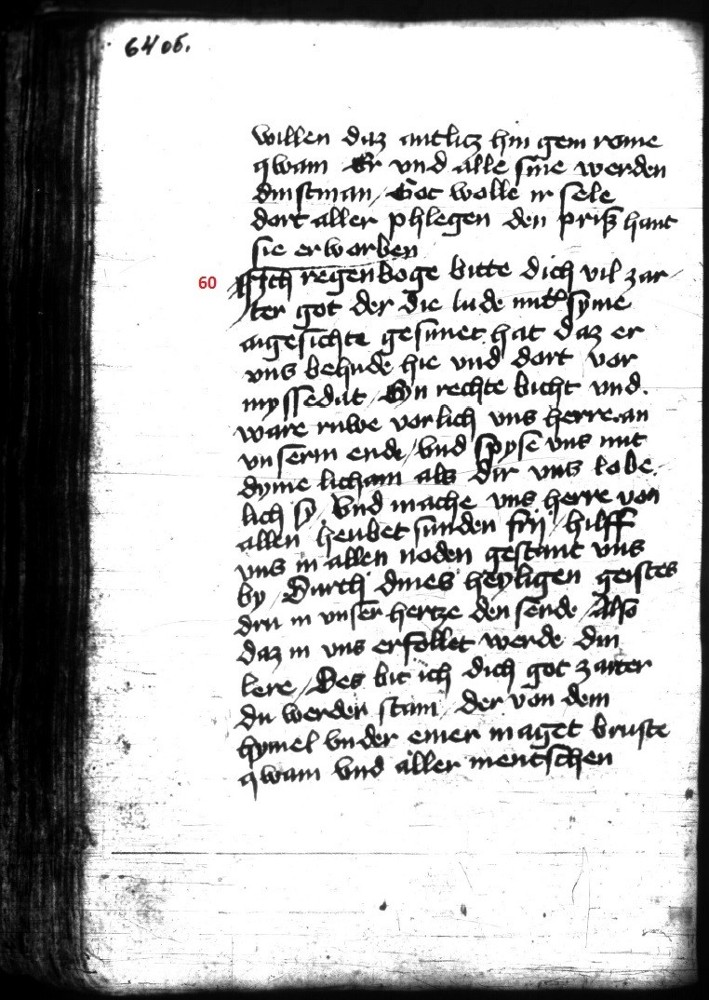 64 06.
willen daz antlitz hin gem rome
qwam Er vnd alle sine werden
dinstman / Got wolle ir sele
dort aller phlegen den priß hant
sie erworben
60 Ich regenboge bitte dich vil zar
ter got der die lude mit syme
angesichte gesimet hat daz er
vns behude hie vnd dort vor
myssedat / Eyn rechte bicht vnd
ware ruwe vorlich vns herre an
vnserm ende / vnd spyse vns mit
dyme licham als dir vns lobe
lich sy / Vnd mache vns herre von
allen heubet sunden frij / hilff
vns in allen noden gestant vns
by / Durch dines heyligen geistes
dru in vnser hertze den sende / Also
daz in vns erfollet werde din
lere / Des bit ich dich got zarter
du werder stam / der von dem
hymel vnder einer maget bruste
qwam vnd aller mentschen